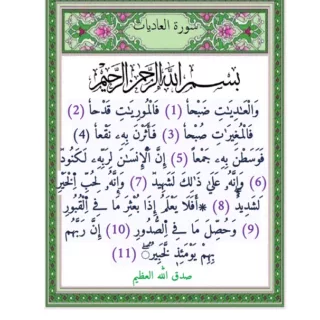 سورة العاديات
بسم الله الرحمن الرحيم
وَالْعَٰدِيَٰتِ ضَبْحاٗ (1) فَالْمُورِيَٰتِ قَدْحاٗ (2)
فَالْمُغِيرَٰتِ صُبْحاٗ (3) فَأَثَرْنَ بِهِۦ نَقْعاٗ (4)
فَوَسَطْنَ بِهِۦ جَمْعاً (5) إِنَّ اَ۬لْإِنسَٰنَ لِرَبِّهِۦ لَكَنُودٞ
(6) وَإِنَّهُۥ عَلَىٰ ذَٰلِكَ لَشَهِيدٞ (7) وَإِنَّهُۥ لِحُبِّ اِ۬لْخَيْرِ
لَشَدِيدٌ (8) ۞أَفَلَا يَعْلَمُ إِذَا بُعْثِرَ مَا فِے اِ۬لْقُبُورِ
(9) وَحُصِّلَ مَا فِے اِ۬لصُّدُورِ (10) إِنَّ رَبَّهُم
بِهِمْ يَوْمَئِذٖ لَّخَبِيرُۢ (11)
صدق الله العظيم